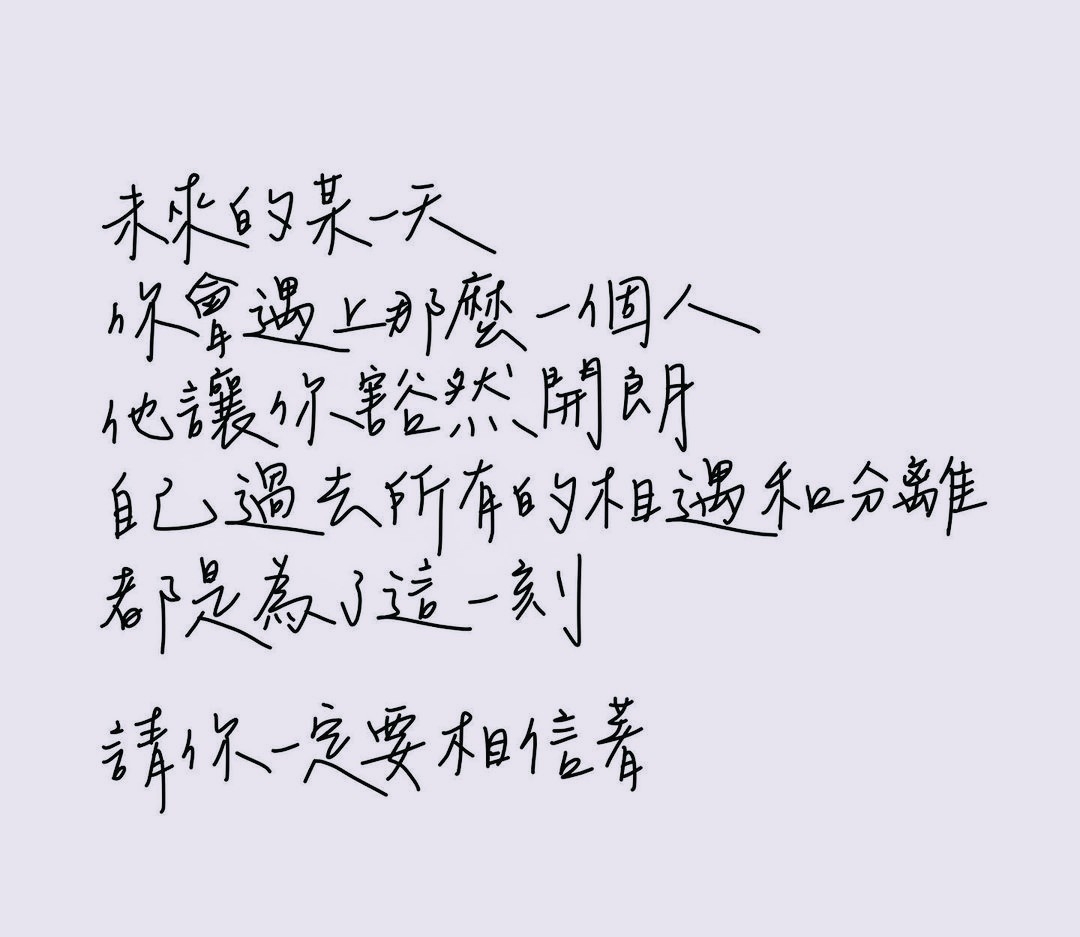 未來的某一天
你會遇上那麼一個人
他讓你豁然開朗
自己過去所有的相遇和分離
都是為了這一刻
請你一定要相信著